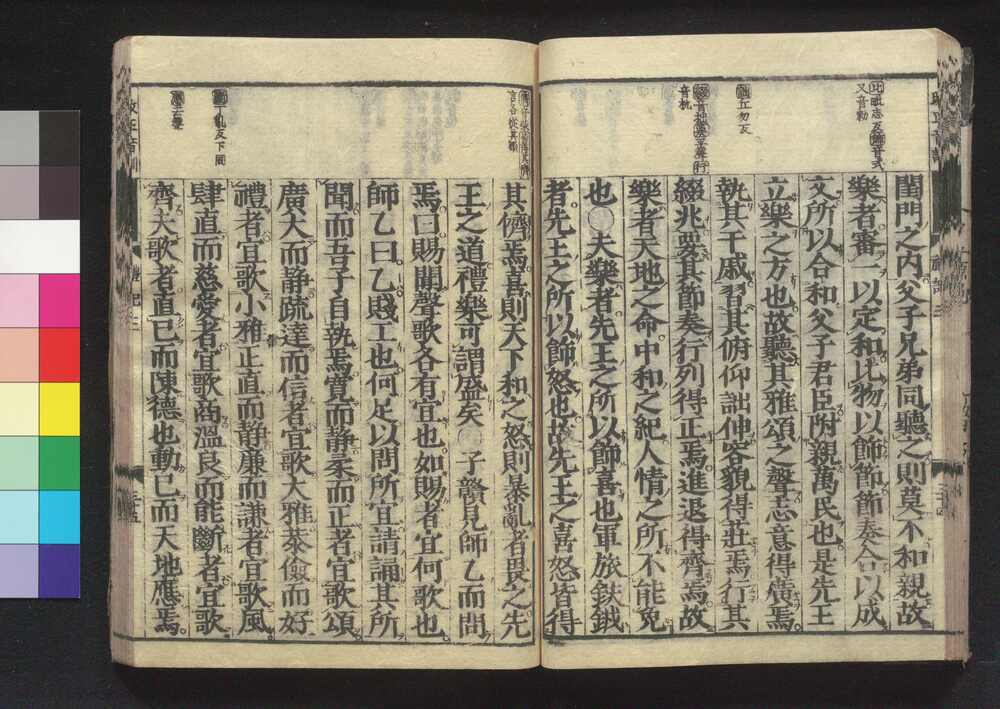 閨門之内父子兄弟同聽之則莫不和親故
樂者審一以定和比物以飾節節奏合以成
文所以合和父子君臣附親萬民也是先王
立樂之方也故聽其雅頌之聲志意得廣焉
執其干戚習其俯仰詘伸容貌得莊焉行其
綴兆要其節奏行列得正焉進退得齊焉故
樂者天地之命中和之紀人情之所不能免
也○夫樂者先王之所以飾喜也軍旅鈇鉞
者先王之所以飾怒也故先王之喜怒皆得
其儕焉喜則天下和之怒則暴亂者畏之先
王之道禮樂可謂盛矣○子贛見師乙而問
焉曰賜聞聲歌各有宜也如賜者宜何歌也
師乙曰乙賤工也何足以問所宜請誦其所
聞而吾子自執焉寛而静柔而正者宜歌頌
廣大而静疏達而信者宜歌大雅恭儉而好
禮者宜歌小雅正直而静廉而謙者宜歌風
肆直而慈愛者宜歌商溫良而能斷者宜歌
齊夫歌者直己而陳德也動己而天地應焉
比毗志反飾音式
又音勑
詘丘勿反
音批
丁亂反下同